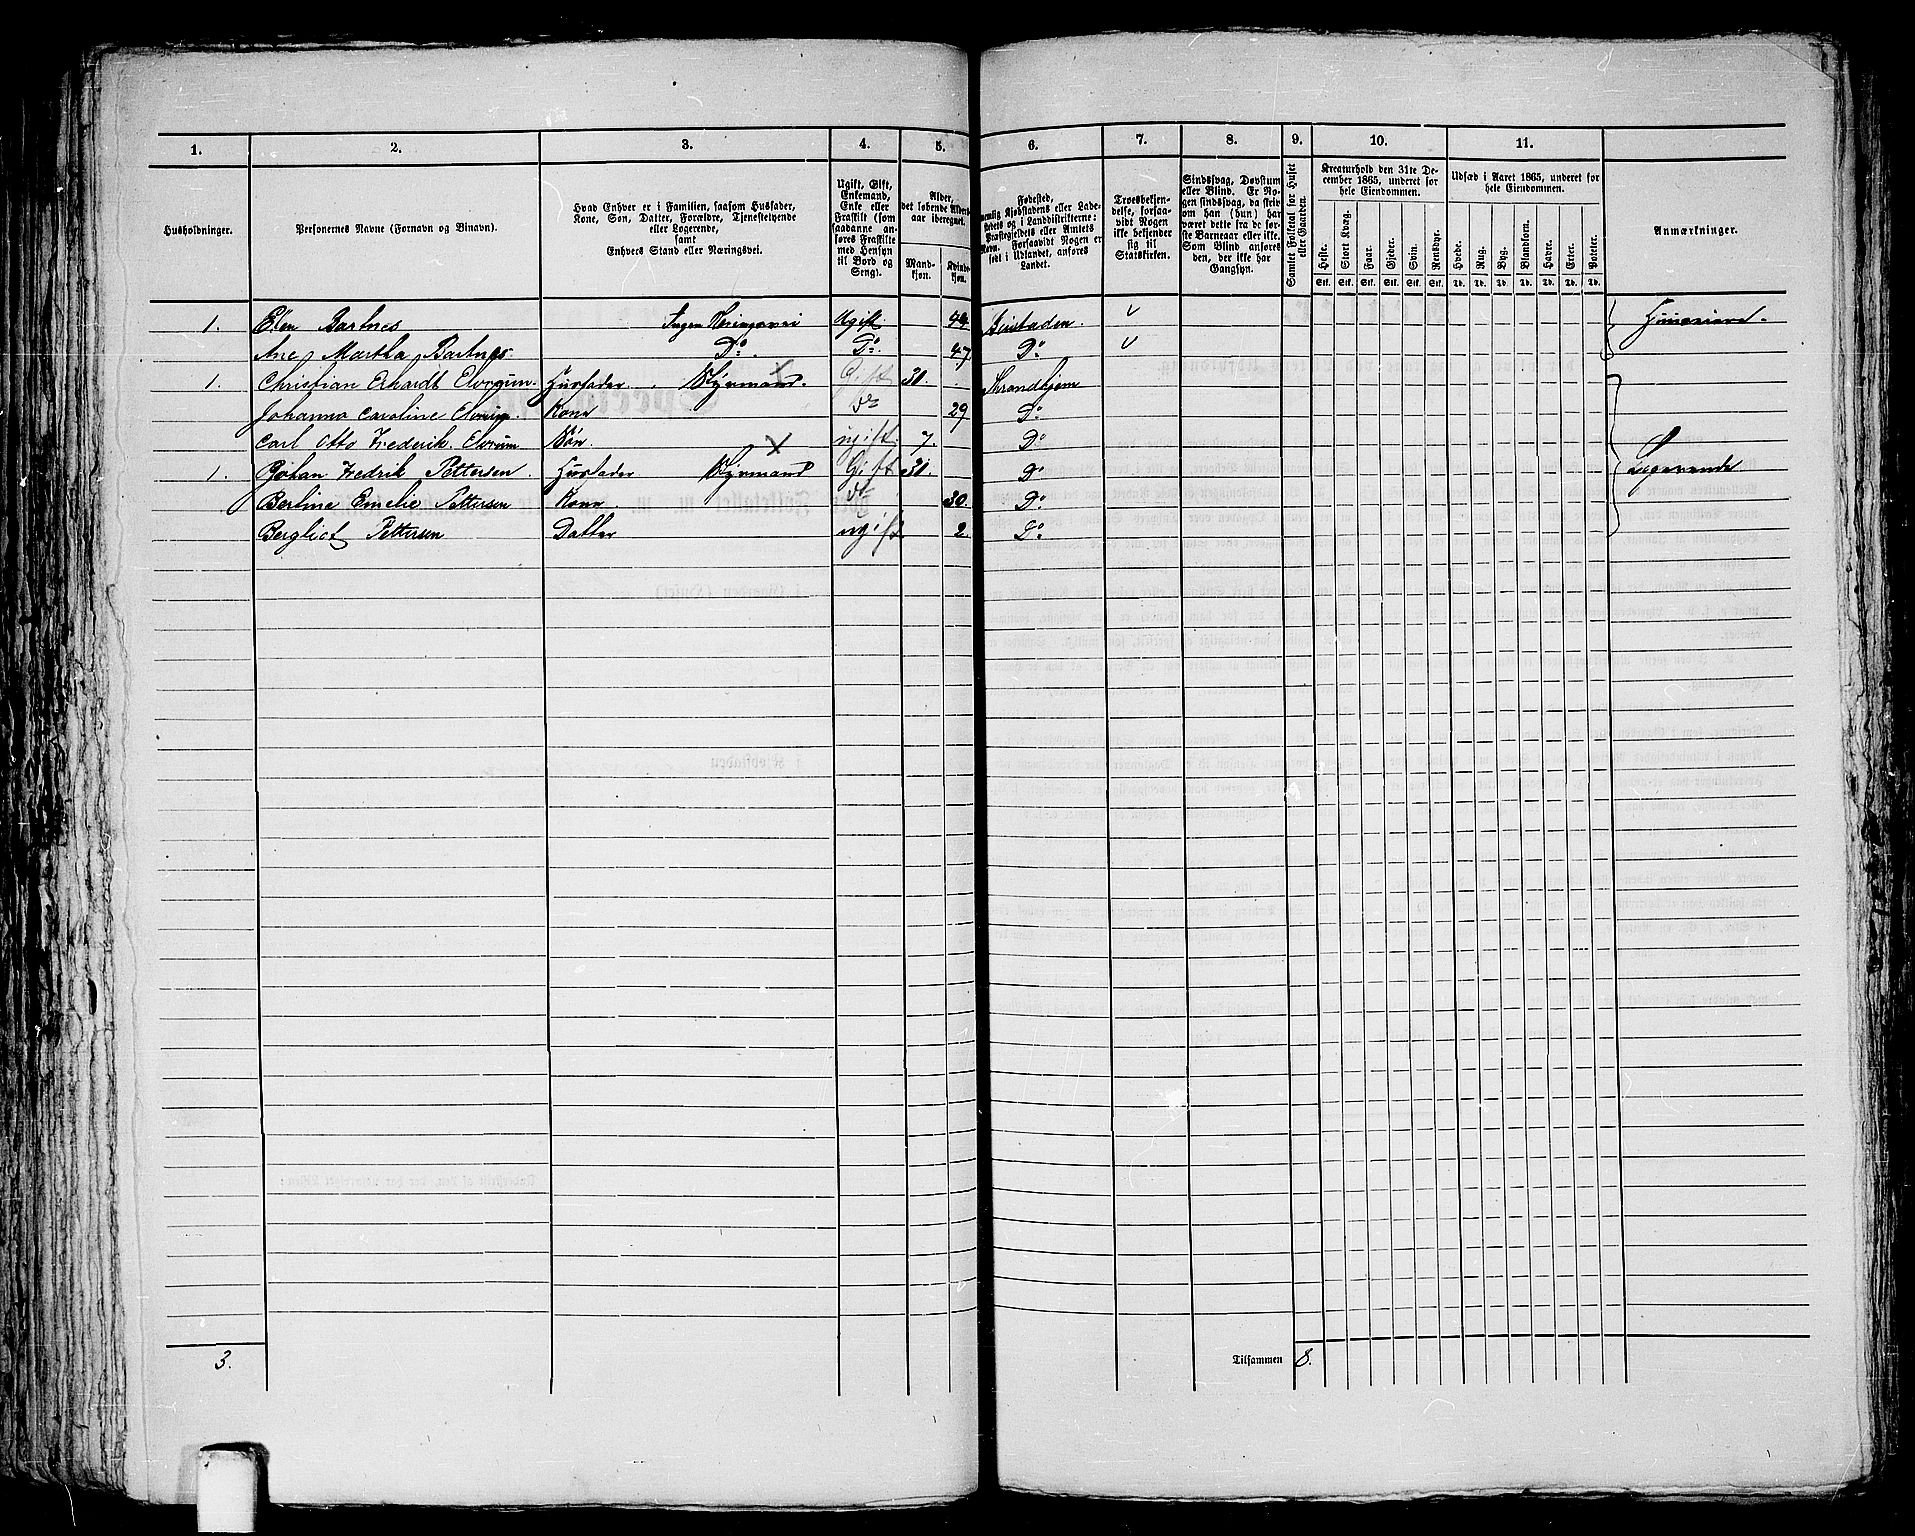 1. 2. 3. 4. 5. 6. 7. 8. 9. 10. 11.
Husholdninger.
Personernes Navne (Fornavn og Binavn).
Hvad Enhver er i Familien, saasom Husfader,
Kone, Søn, Datter, Forældre, Tjenestetyende
eller Logerende,
samt
Enhvers Stand eller Næringsvei.
Ugift, Gift,
Enkemand,
Enke eller
Fraskilt (som
saadanne an-
føres Fraskilte
med Hensyn
til Bord og
Seng).
Alder,
det løbende Alders-
aar iberegnet.
Mand-
kjøn.
Kvinde-
kjøn.
Fødested,
nemlig Kjøbstadens eller Lade-
stedets og i Landdistrikterne:
Præstegjeldets eller Amtets
Navn. Forsaavidt Nogen er
født i Udlandet, anføres
Landet.
Troesbekjen-
delse, forsaa-
vidt Nogen
ikke bekjender
sig til
Statskirken.
Sindssvag, Døvstum
eller Blind. Er No-
gen sindssvag, da skriv
om han (hun) har
været dette fra de før-
ste Barneaar eller ikke.
Som Blind anføres
den, der ikke har
Gangsyn.
Samlet Folketal for Huset
eller Gaarden.
Kreaturhold den 31te De-
cember 1865, underet for
hele Eiendommen.
Heste. Stort Kvæg. Faar. Gjeder. Svin. Rensdyr.
Stk. Stk. Stk. Stk. Stk. Stk.
Udsæd i Aaret 1865, underet for
hele Eiendommen.
Hvede. Rug. Byg. Blandkorn. Havre. Erter. Poteter.
Td. Td. Td. Td. Td. Td. Td.
Anmærkninger.
1. Ellen Bartnes Ingen Næringsvei Ugift 44 Beistaden
Ane Martha Bartnes. Do. Do. 47 Do
1. Christian Erhardt Husfader Styrmand. Gift 31. Trondhjem
Johanna Caroline Kone Do 29 Do
Carl Otto Frederik Søn. ugift 7. Do
1. Johan Fredrik Pettersen. Husfader Styrmand Gift 31. Do Logerende
Bertine Emelie Pettersen Kone Do 30. Do
Bergliot Pettersen Datter ugift 2. Do
3. Tilsammen 8.